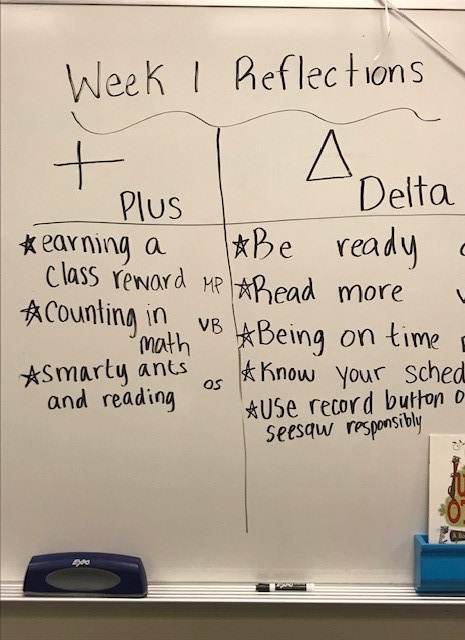 Week 1 Reflections
+ Δ
Plus
Delta
earning a
class reward MP
counting in
math VB
smarty ants
and reading os
Be ready
Read more
Being on time
Know your
use record button
seesaw responsibly
EXPO
EXPO